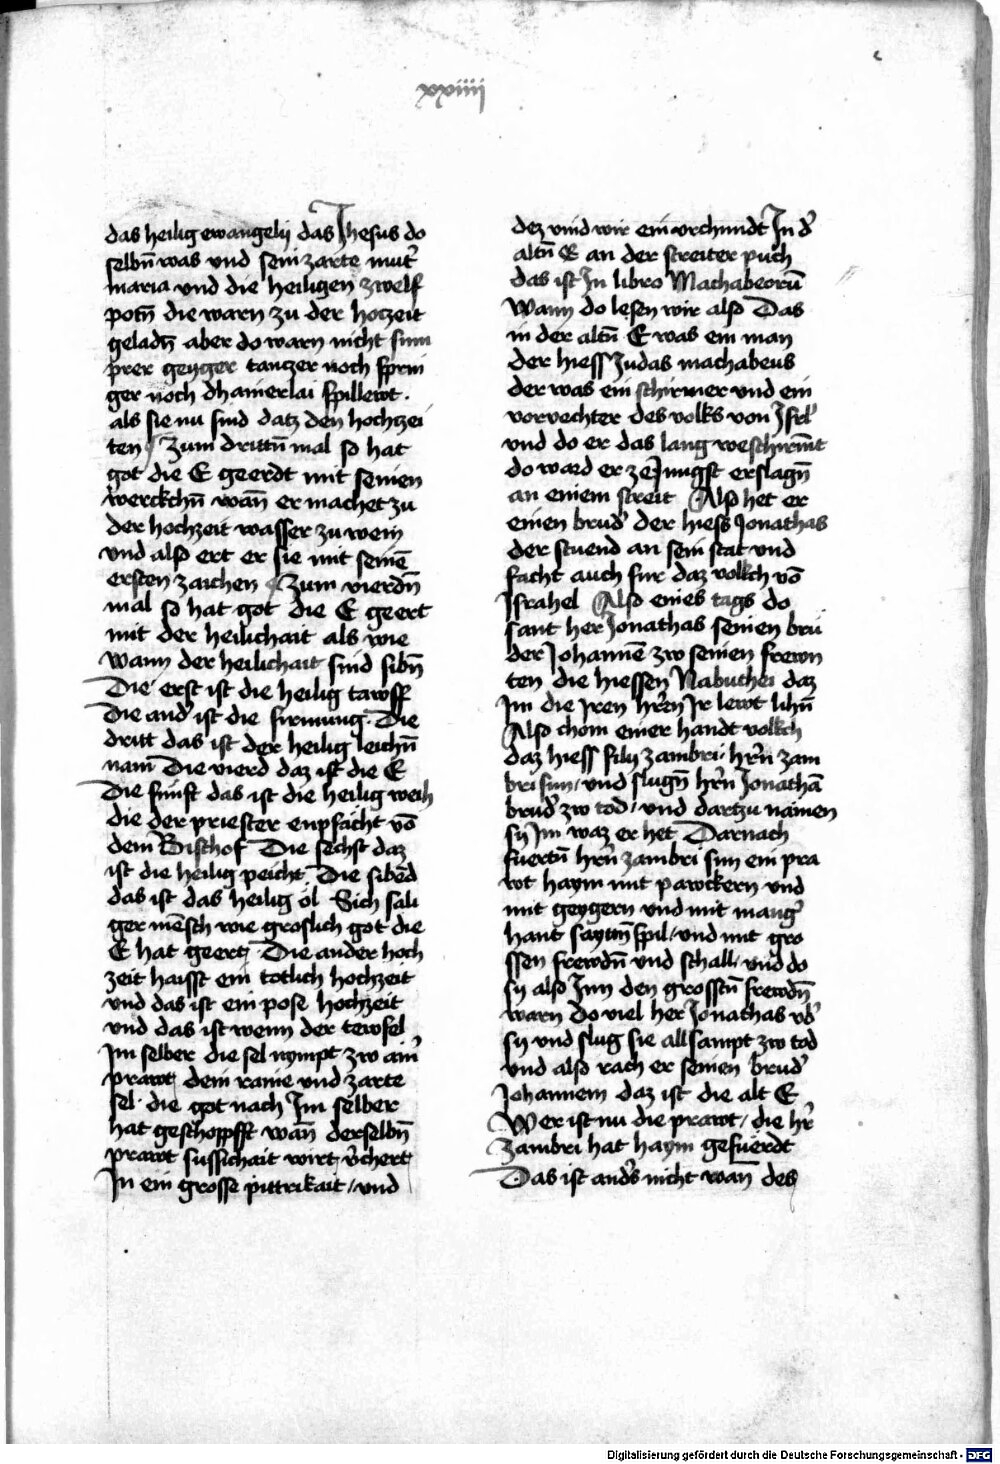 xxiiii
das heilig ewangelij das Jhesus do
selbn̄ was vnd sein zarte mut̄
maria vnd die heiligen zwelf
potn̄ die warn zu der hotzeit
geladn̄ aber do warn nicht sinn
prer geyger tanczer noch sprin
ger noch dhainerlai spillewt .
als sie nu sind datz den hochzei
ten Zum drittn̄ mal so hat
got die E geerdt mit seinen
werckchn̄ wan̄ er machet zu
der hochzeit wasser zu wein
vnd also ert er sie mit seinē
ersten zaichen Zum vierdn̄
mal so hat got die E geert
mit der heilichait als wie
wann der heilichait sind sibn̄
Die erst ist die heilig tawff
Die and̄ ist die firmung . Die
dritt das ist der heilig leichn̄
nam Die vierd daz ist die E
Die funft das ist die heilig weih
die der priester enpfacht vō
dem Bischof Die sechst daz
ist die heilig peicht Die sibēd
das ist das heilig öl Sich sali
ger mēsch wie groslich got die
E hat geert Die ander hoch
zeit haisst ein totlich hochzeit
vnd das ist ein pose hochzeit
vnd das ist wenn der tewfel
Im selber die sel nympt zw ain̄
prawt dem raine vnd zarte
sel . die got nach Im selber
hat geschoppfft wan̄ derselbn̄
prawt sussichait wirt v̄chert
In ein grosse pittrikait / vnd
dez vind wir ein vrchundt In d̄
altn̄ E an der streiter puch
das ist In libro Machabeorū
Wann do lesen wir also Das
in der altn̄ E was ein man
der hiess Judas machabeus
der was ein schirmer vnd ein
vorvechter des volks von Jsrl̄
vnd do er das lang weschirm̄t
do ward er ze Jungst erslagn̄
an einem streit Also het er
einen brud̄ der hiess Jonathas
der stuend an sein stat vnd
facht auch fur daz vollch vō
Jsrahel Also eines tags do
sant her Jonathas seinen brü
der Johannē zw seinen frewn
ten die hiessen Nabuthei daz
Im die Jren hr̄en Jr lewt lihn̄
Also chom einer handt vollch
daz hiess filij zambri . hr̄n zam
bri sun / vnd slugn̄ hr̄n Jonathā
brud̄ zw tod / vnd dartzu namen
sy Im waz er het Darnach
fuertn̄ hr̄n zambri sun ein pra
wt haym mit pawckern vnd
mit geygern vnd mit manḡ
hant saytn̄ spil / vnd mit gro
ssen frewdn̄ vnd schall / vnd do
sy also Inn den grosstn̄ frewdn̄
warn Do viel her Jonathas vb̄
sy vnd slug sie allsampt zw tod
vnd also rach er seinen brud̄
Johannem daz ist die alt E
Wer ist nu die prawt / die hr̄
zambri hat haym gefuerdt
Das ist and̄s nicht wan̄ des
Digitalisierung gefördert durch die Deutsche Forschungsgemeinschaft - DFG